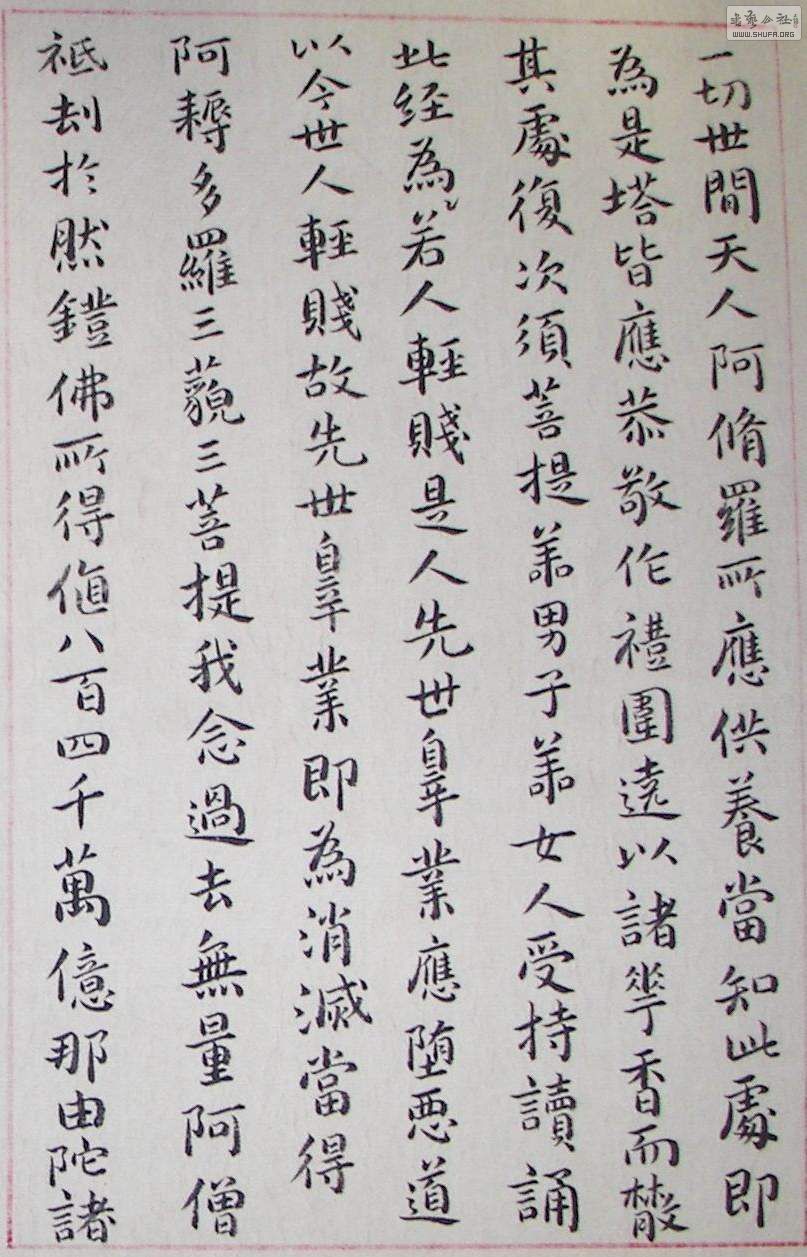 一切世間天人阿脩羅所應供養當知此處即
為是塔皆應恭敬作禮圍遶以諸華香而散
其處復次須菩提善男子善女人受持讀誦
此経為若人輕賤是人先世辠業應堕悪道
以今世人輕賤故先世辠業即為消滅當得
阿耨多羅三藐三菩提我念過去無量阿僧
祇刼於然鐙佛所得値八百四千萬億那由陀諸
WWW.SHUFA.ORG